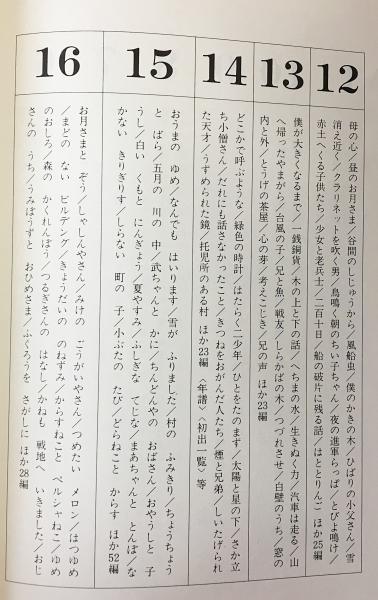 12
母の心/昼のお月さま/谷間のしじゅうから/風船虫/僕のかきの木/ひばりの小父さん/雪
消え近く/クラリネットを吹く男/鳥鳴く朝のちい子ちゃん/夜の進軍らっぱ/とびよ鳴け/
赤土へくる子供たち/少女と老兵士/二百十日/船の破片に残る話/はととりんご ほか25編
13
僕が大きくなるまで/一銭銅貨/木の上と下の話/へちまの水/生きぬく力/汽車は走る/山
へ帰ったやまがら/台風の子/兄と魚/戦友/しらかばの木/つづれさせ/白壁のうち/窓の
内と外/とうげの茶屋/心の芽/考えこじき/兄の声 ほか23編
14
どこかで呼ぶような/緑色の時計/はたらく二少年/ひとをたのまず/太陽と星の下/さか立
ち小僧さん/だれにも話さなかったこと/きつねをおがんだ人たち/煙と兄弟/しいたげられ
た天才/うずめられた鏡/托児所のある村 ほか23編 〈年譜〉〈初出一覧〉等
15
おうまの ゆめ/なんでも はいります/雪が ふりました/村の ふみきり/ちょうちょう
と ばら/五月の 川の 中/武ちゃんと かに/ちんどんやの おばさん/おやうしと 子
うし/白い くもと にんぎょう/夏やすみ/ふしぎな てじな/まあちゃんと とんぼ/な
かない きりぎりす/しらない 町の 子/小ぶたの たび/どらねこと からす ほか52編
16
お月さまと ぞう/しゃしんやさん/みけの ごうがいやさん/つめたい メロン/はつゆめ
/まどの ない ビルデング/きょうだいの のねずみ/からすねこと ペルシャねこ/ゆめ
のおしろ/森の かくれんぼう/つるぎさんの はなし/かねも 戦地へ いきました/おじ
さんの うち/うみぼうずと おひめさま/ふくろうを さがしに ほか28編